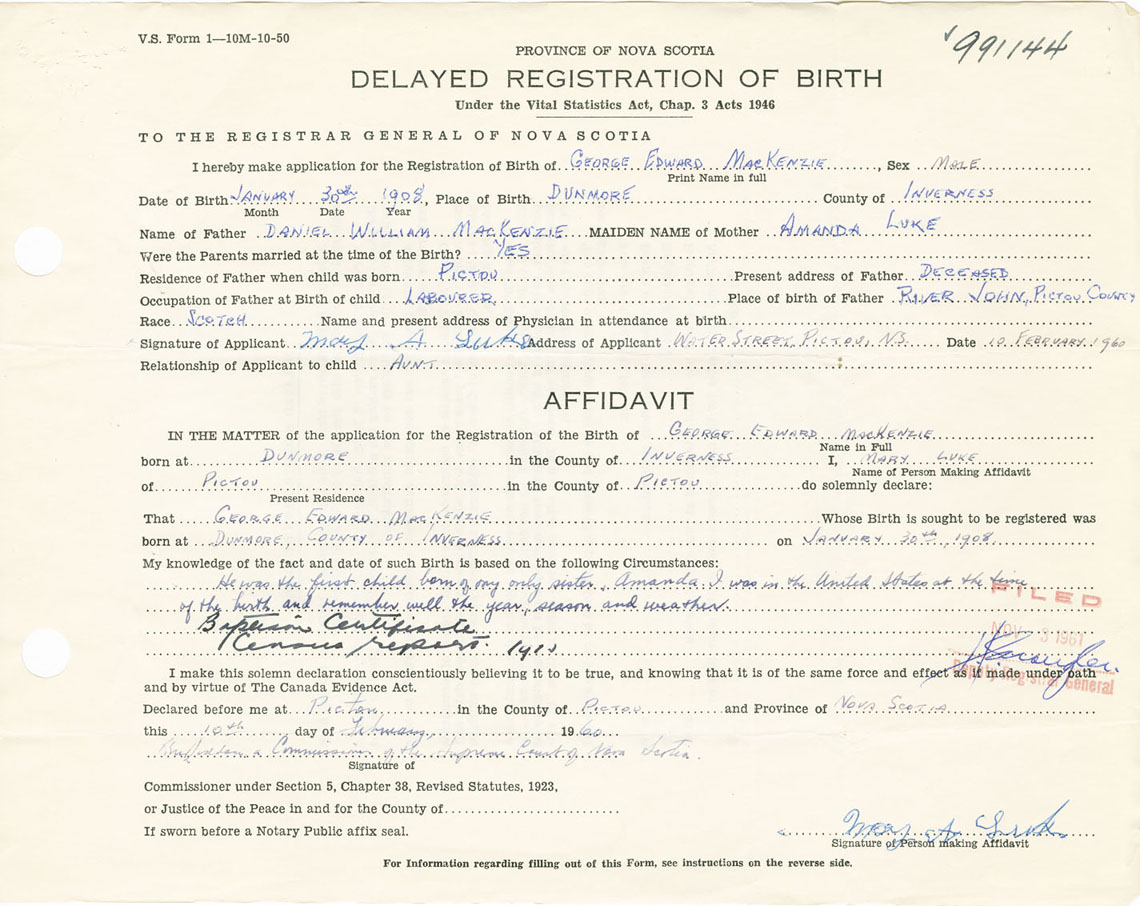 V.S. Form 1—10M-10-50
991144
PROVINCE OF NOVA SCOTIA
DELAYED REGISTRATION OF BIRTH
Under the Vital Statistics Act, Chap. 3 Acts 1946
TO THE REGISTRAR GENERAL OF NOVA SCOTIA
I hereby make application for the Registration of Birth of GEORGE EDWARD MACKENZIE, Sex MALE
Print Name in full
Date of Birth JANUARY 30th 1908, Place of Birth DUNMORE County of INVERNESS
Month Date Year
Name of Father DANIEL WILLIAM MACKENZIE MAIDEN NAME of Mother AMANDA LUKE
Were the Parents married at the time of the Birth? YES
Residence of Father when child was born PICTOU Present address of Father DECEASED
Occupation of Father at Birth of child LABOURER Place of birth of Father RIVER JOHN, PICTOU COUNTY
Race SCOTCH Name and present address of Physician in attendance at birth
Signature of Applicant Mary A Luke Address of Applicant WATER STREET, PICTOU, N.S. Date 10 FEBRUARY 1960
Relationship of Applicant to child AUNT
AFFIDAVIT
IN THE MATTER of the application for the Registration of the Birth of GEORGE EDWARD MACKENZIE
Name in Full
born at DUNMORE in the County of INVERNESS I, MARY LUKE
Name of Person Making Affidavit
of PICTOU in the County of PICTOU do solemnly declare:
Present Residence
That GEORGE EDWARD MACKENZIE Whose Birth is sought to be registered was
born at DUNMORE, COUNTY OF INVERNESS on JANUARY 30th, 1908
My knowledge of the fact and date of such Birth is based on the following Circumstances:
He was the first child born of my only sister, Amanda. I was in the United States at the time
of the birth and remember well the year, season and weather.
FILED
Baptism Certificate
NOV 3 1961
Census report.
Deputy Registrar General
I make this solemn declaration conscientiously believing it to be true, and knowing that it is of the same force and effect as if made under oath
and by virtue of The Canada Evidence Act.
Declared before me at Pictou, in the County of PICTOU and Province of NOVA SCOTIA
this 10th day of February, 1960
a Commissioner of the Supreme Court of Nova Scotia.
Signature of
Commissioner under Section 5, Chapter 38, Revised Statutes, 1923,
or Justice of the Peace in and for the County of
If sworn before a Notary Public affix seal.
Mary A Luke
Signature of Person making Affidavit
For Information regarding filling out of this Form, see instructions on the reverse side.